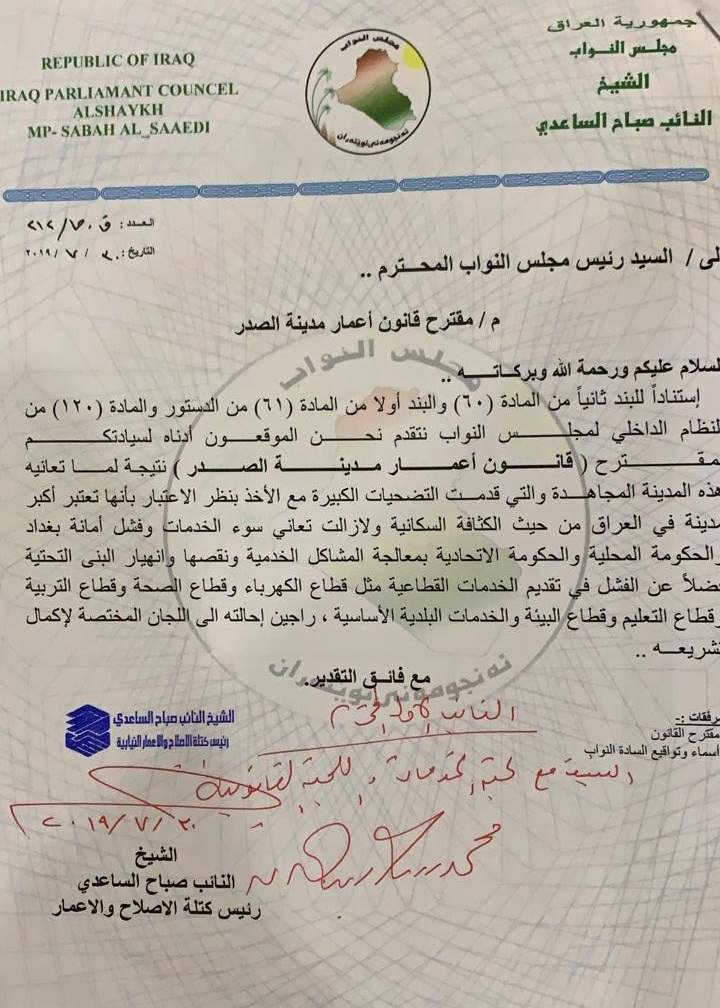 REPUBLIC OF IRAQ
IRAQ PARLIAMANT COUNCEL
ALSHAYKH
MP- SABAH AL_SAAEDI
مجلس النواب
ئه نجومه نی نوینه ران
جمهورية العراق
مجلس النواب
الشيخ
النائب صباح الساعدي
العدد: ق.ص/٢١٢
التاريخ: ٣٠ / ٧ / ٢٠١٩
لى / السيد رئيس مجلس النواب المحترم ..
م / مقترح قانون أعمار مدينة الصدر
لسلام عليكم ورحمة الله وبركاته ..
إستناداً للبند ثانياً من المادة (٦٠) والبند أولا من المادة (٦١) من الدستور والمادة (١٢٠) من
لنظام الداخلي لمجلس النواب نتقدم نحن الموقعون أدناه لسيادتكم
مقترح ( قانون أعمار مدينة الصدر ) نتيجة لما تعانيه
هذه المدينة المجاهدة والتي قدمت التضحيات الكبيرة مع الأخذ بنظر الاعتبار بأنها تعتبر أكبر
مدينة في العراق من حيث الكثافة السكانية ولازالت تعاني سوء الخدمات وفشل أمانة بغداد
والحكومة المحلية والحكومة الاتحادية بمعالجة المشاكل الخدمية ونقصها وانهيار البنى التحتية
فضلاً عن الفشل في تقديم الخدمات القطاعية مثل قطاع الكهرباء وقطاع الصحة وقطاع التربية
وقطاع التعليم وقطاع البيئة والخدمات البلدية الأساسية ، راجين إحالته الى اللجان المختصة لإكمال
تشريعه ..
مع فائق التقدير.
مجلس النواب
ئه نجومه نی نوینه ران
مرفقات :-
مقترح القانون
أسماء وتواقيع السادة النواب
الشيخ النائب صباح الساعدي
رئيس كتلة الاصلاح والاعمار النيابية
النائب الأول المحترم
السيد مع لجنة الخدمات واللجنة القانونية
٢٠١٩/٧/٣٠
الشيخ
النائب صباح الساعدي
رئيس كتلة الاصلاح والاعمار